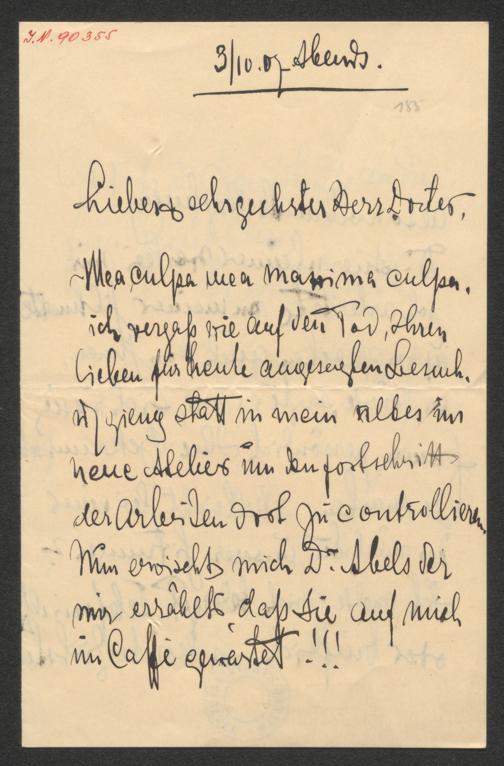 J.N. 90355
3/10.07 Abends.
185
Lieber sehrgeehrter Herr Doctor,
Mea culpa mea maxima culpa.
ich vergaß wie auf den Tod, Ihren
lieben für heute angesagten Besuch.
u gieng statt in mein altes ins
neue Atelier um den fortschritt
der Arbeiten dort zu controllieren.
Nun erwischt mich Dr. Abels der
mir erzählt, daß Sie auf mich
im Caffé gewartet !!!